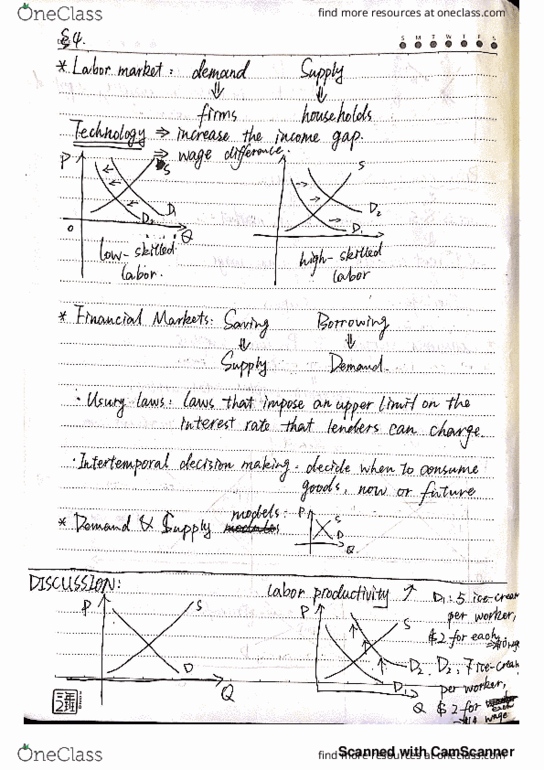 OneClass
find more resources at oneclass.com
§4.
S M T W T F S
* Labor market: demand Supply
⇓ ⇓
firms households
Technology ⇒ increase the income gap.
⇒ wage difference.
P S D₁ D₂ Q 0
low-skilled labor.
S D₂ D₁
high-skilled labor
* Financial Markets: Saving Borrowing
⇓ ⇓
Supply Demand.
· Usury laws: laws that impose an upper limit on the
interest rate that lenders can charge.
· Intertemporal decision making. decide when to consume
goods, now or future
* Demand & Supply models: P S D Q
DISCUSSION: labor productivity ↗
P S D Q
P S D₂ D₁ Q
D₁: 5 ice-cream
per worker,
$2 for each
D₂: 7 ice-cream
per worker,
$2 for each
wage
三年
2班
OneClass
Scanned with CamScanner
find more resources at oneclass.com